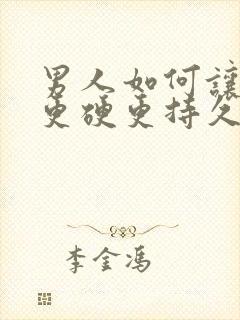 男人如何讓
更硬更持久
李金馮